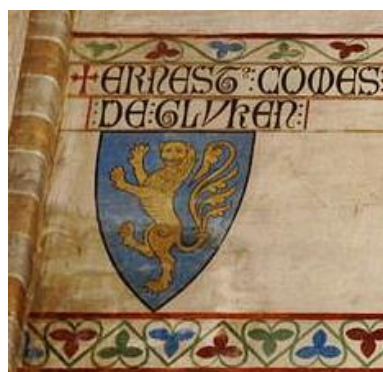 +ERNEST᷒:COMES:
:DE:GLVKEN: